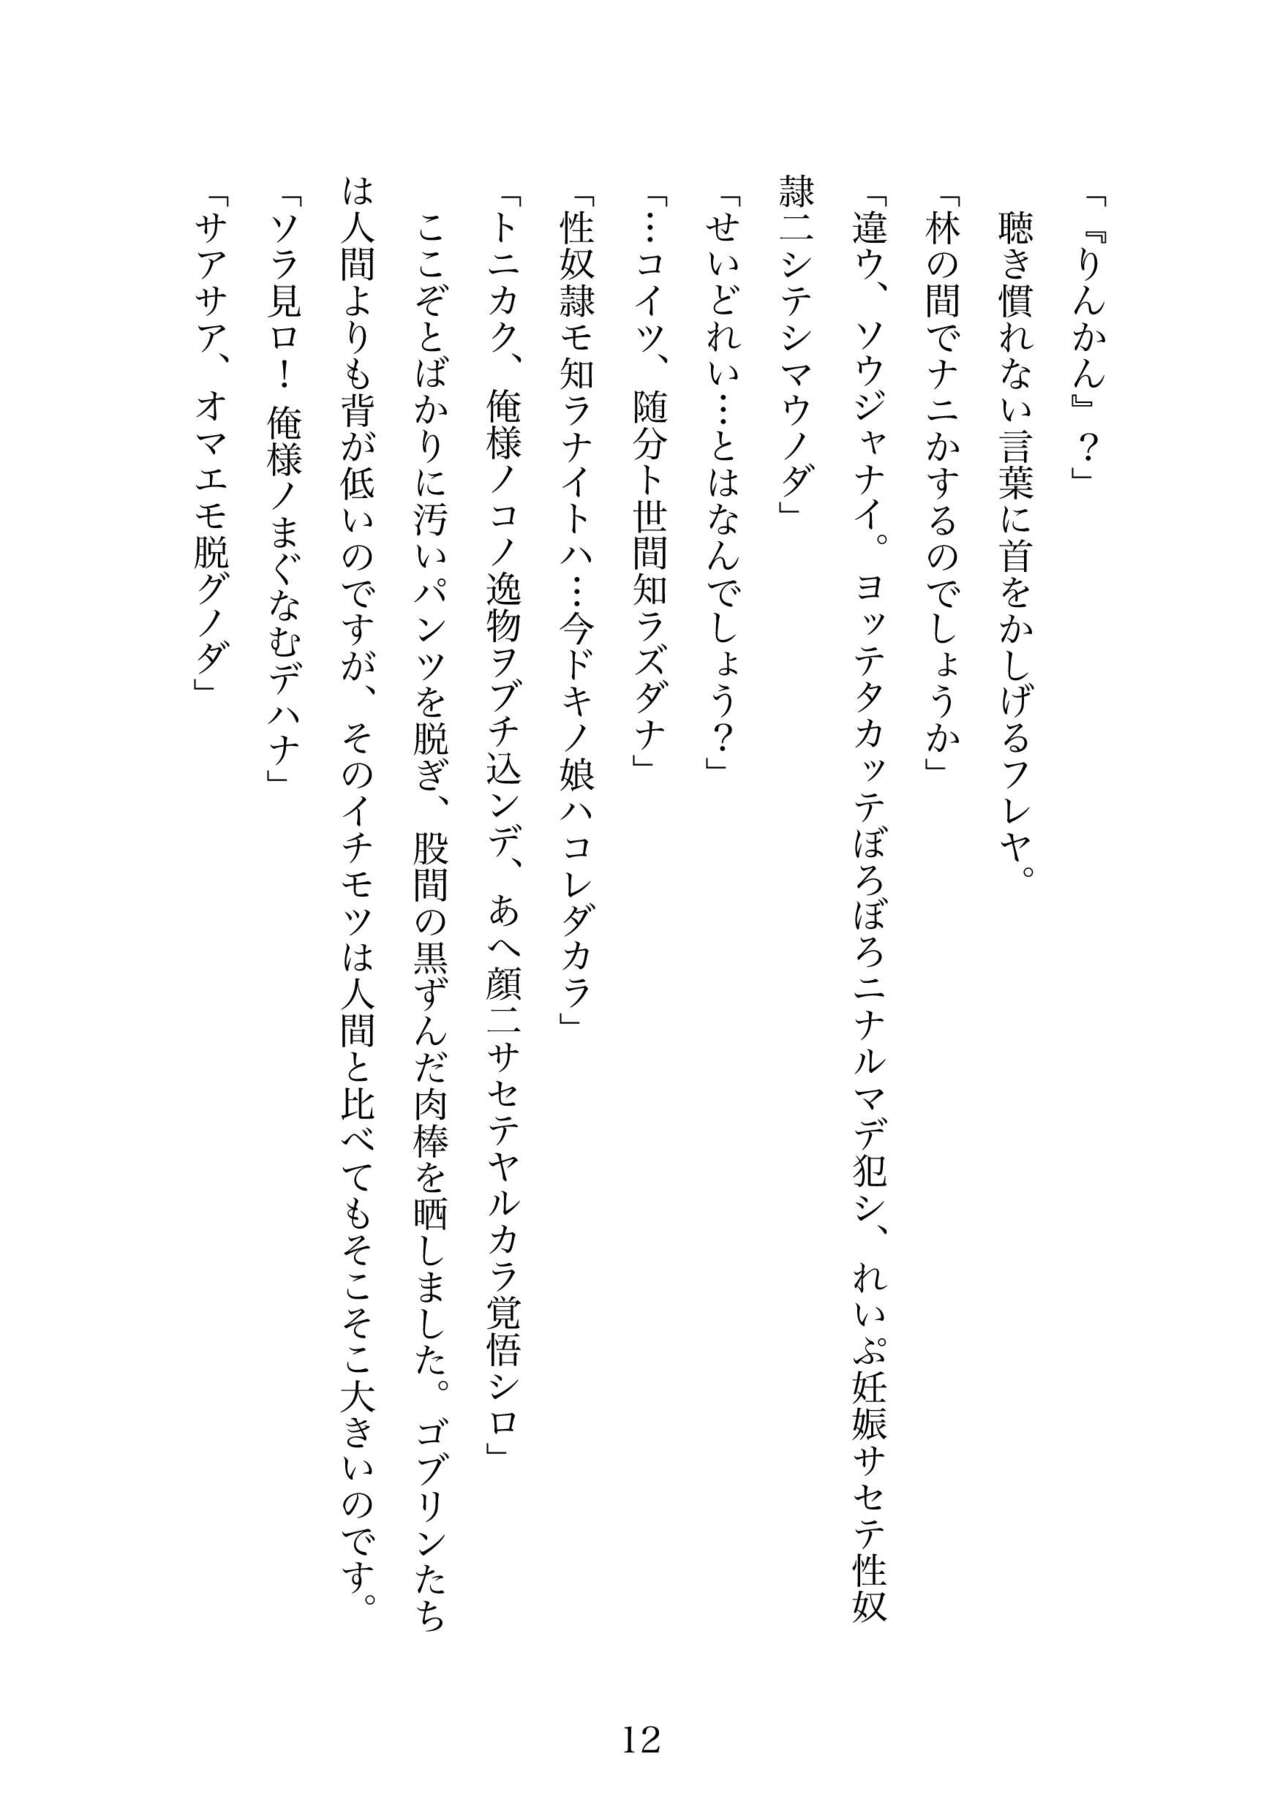 「『りんかん』？」
　聴き慣れない言葉に首をかしげるフレヤ。
「林の間でナニかするのでしょうか」
「違ウ、ソウジャナイ。ヨッテタカッテぼろぼろニナルマデ犯シ、れいぷ妊娠サセテ性奴
隷ニシテシマウノダ」
「せいどれい…とはなんでしょう？」
「…コイツ、随分ト世間知ラズダナ」
「性奴隷モ知ラナイトハ…今ドキノ娘ハコレダカラ」
「トニカク、俺様ノコノ逸物ヲブチ込ンデ、あへ顔ニサセテヤルカラ覚悟シロ」
　ここぞとばかりに汚いパンツを脱ぎ、股間の黒ずんだ肉棒を晒しました。ゴブリンたち
は人間よりも背が低いのですが、そのイチモツは人間と比べてもそこそこ大きいのです。
「ソラ見ロ！俺様ノまぐなむデハナ」
「サアサア、オマエモ脱グノダ」
12